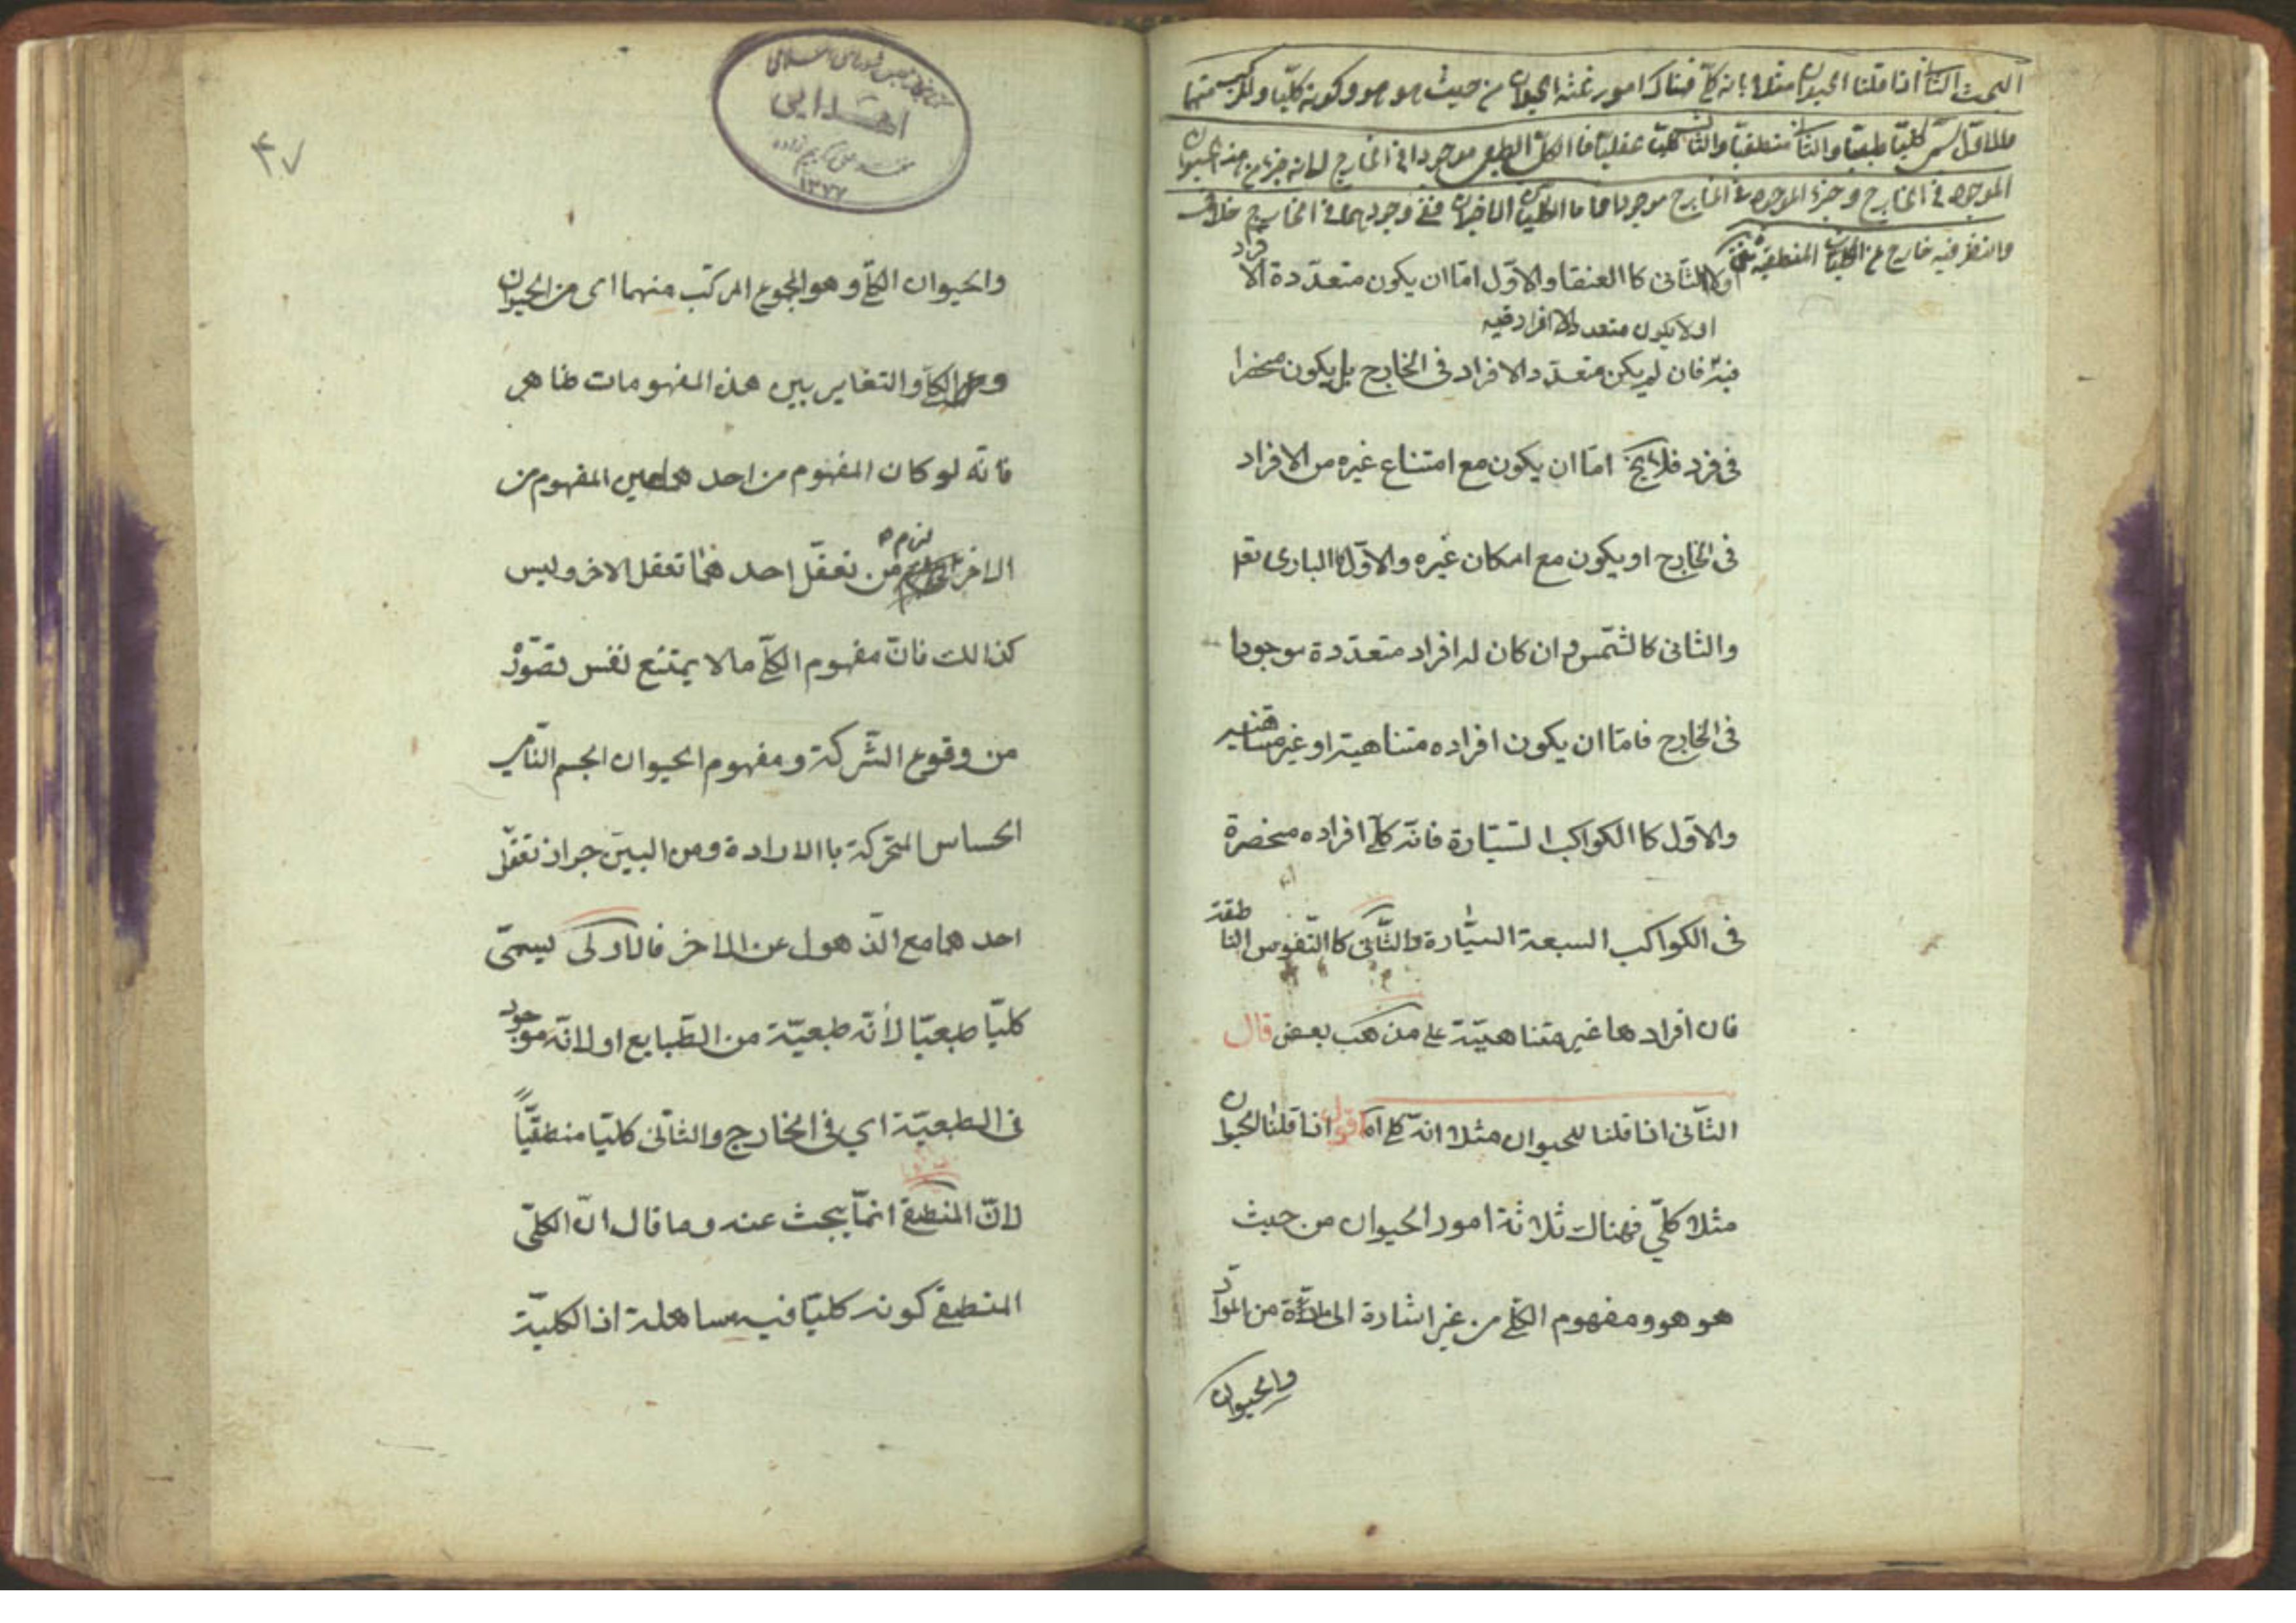 البحث الثانى اذا قلنا الحيوان مثلا بانه كلى فهناك امور ثلثة الحيوان من حيث هو هو وكونه كليا والمركب منهما
والاول يسمى كليا طبعيا والثانى منطقيا والثالث كليا عقليا فا الكلى الطبعى موجود فى الخارج لانه جزء من هذا الحيوان
الموجود فى الخارج و جزء الموجود فى الخارج موجود واما الكليان الاخيران ففى وجودهما فى الخارج خلاف
والنظر فيه خارج عن المنطق
اولا الثانى كا العنقا والاوّل امّا ان يكون متعدّدة الافراد
اولا يكون متعدد الافراد فيه
فيه فان لم يكن متعدّد الافراد فى الخارج بل يكون منحصرا
فى فرد فلا يخ امّا ان يكون مع امتناع غيره من الافراد
فى الخارج او يكون مع امكان غيره والاوّل كا البارى تعا
والثانى كا لشّمس وان كان له افراد متعدّدة موجودا
فى الخارج فامّا ان يكون افراده متناهية او غير متناهية
والاوّل كا الكواكب السّيّارة فانّه كلّى افراده منحصرة
فى الكواكب السبعة السّيّارة والثّانى كا النّفوس الناطقة
فان افرادها غير متناهيّة على مذهب بعض قال
الثّانى اذا قلنا للحيوان مثلا انّه كلى اه اقول اذا قلنا الحيوان
مثلا كلّي فهناك ثلاثة امور الحيوان من حيث
هو هو ومفهوم الكلّى من غير اشارة الى مادّة من الموادّ
والحيوان
كتابخانه مجلس شوراى اسلامى
اهدايى
١٣٧٧
٤٧
والحيوان الكلّى وهو المجموع المركّب منهما اى من الحيوان
و الكلّى والتغاير بين هذه المفهومات ظاهر
فانّه لو كان المفهوم من احدهما عين المفهوم من
الاخر لزم من تعقّل احدهما تعقل الاخر وليس
كذالك فانّ مفهوم الكلّى ما لا يمتنع نفس تصوّره
من وقوع الشّركة ومفهوم الحيوان الجسم النّامى
الحساس المتحركة باالارادة ومن البيّن جواز تعقّل
احدهما مع الذّهول عن الاخر فالاولى يسمّى
كليّا طبعيّا لأنّه طبعيّة من الطّبايع او لانّه موجود
فى الطبعيّة اي فى الخارج والثانى كليّا منطقيّاً
لانّ المنطقى انمّا يبحث عنه وما قال انّ الكلّى
المنطقى كونه كليّا فيه مساهلة اذ الكليّة